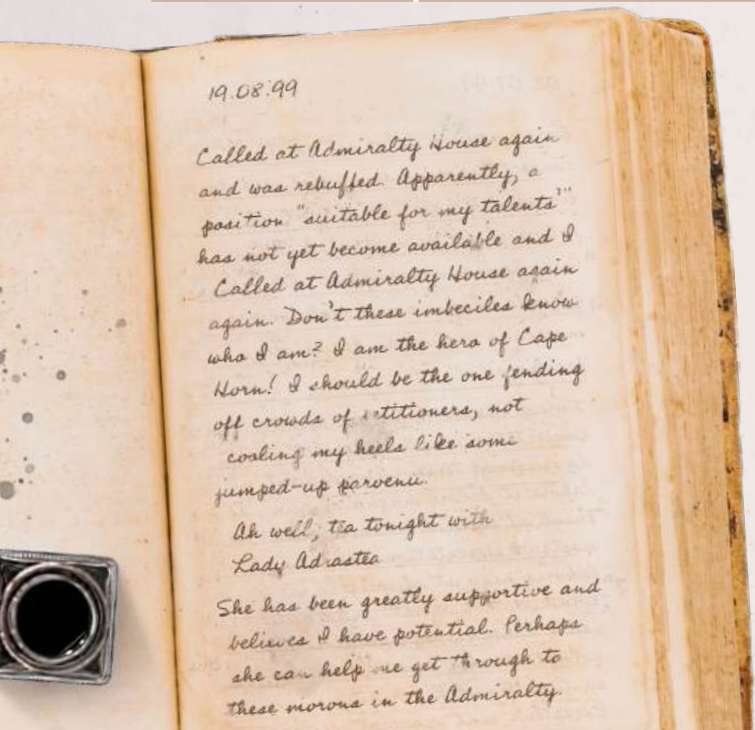 19.08.99
Called at Admiralty House again
and was rebuffed. Apparently, a
position "suitable for my talents"
has not yet become available and I
Called at Admiralty House again
again. Don't these imbeciles know
who I am? I am the hero of Cape
Horn! I should be the one fending
off crowds of petitioners, not
cooling my heels like some
jumped-up parvenu.
Ah well, tea tonight with
Lady Adrastea
She has been greatly supportive and
believes I have potential. Perhaps
she can help me get through to
these morons in the Admiralty.